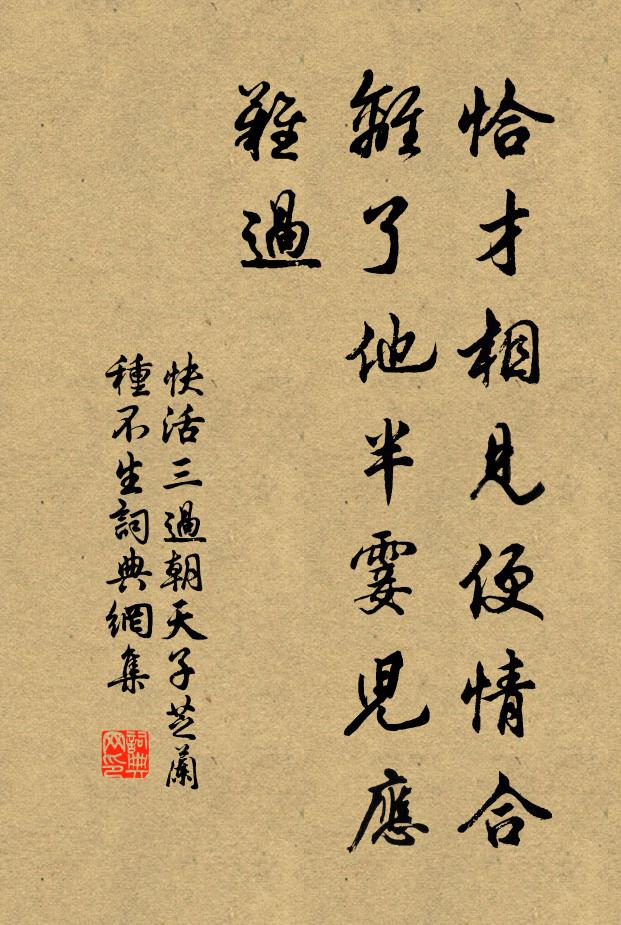 恰才相見便情合
離了他半霎兒應
難過
快活三過朝天子芝蘭
種不生詞典網集
詞典網印